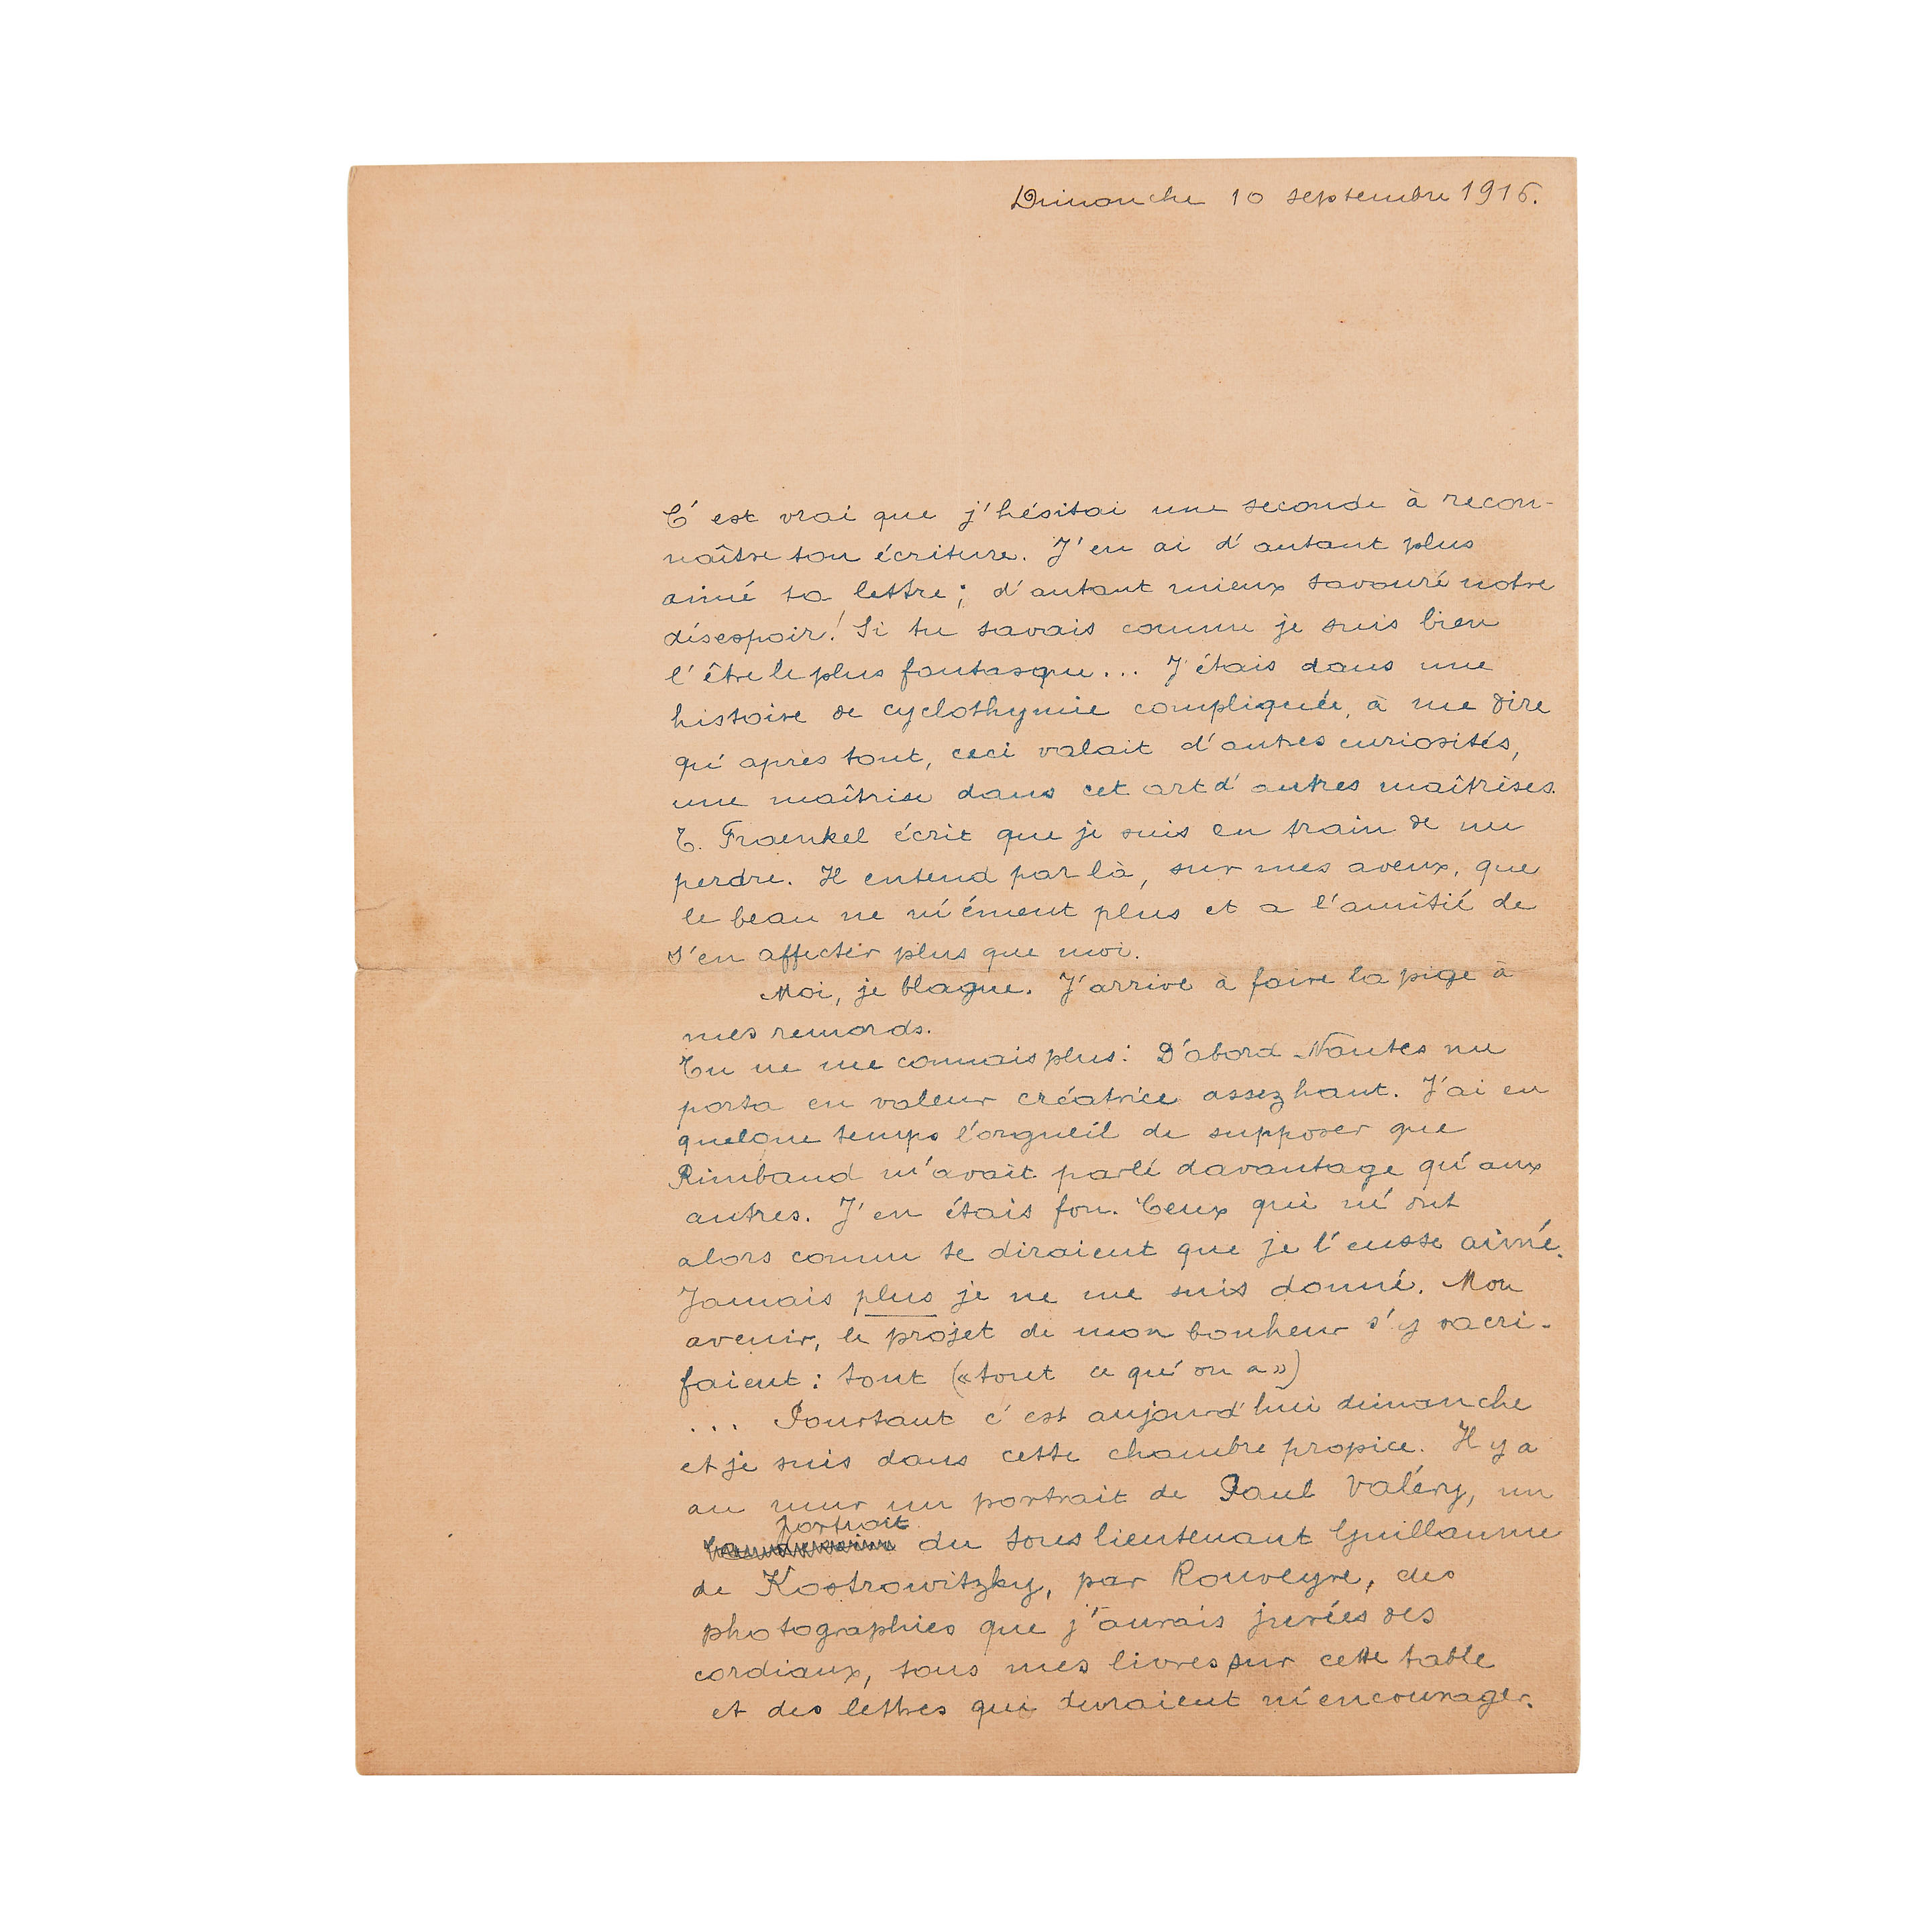 Dimanche 10 septembre 1916.
C'est vrai que j'hésitai une seconde à recon-
naître ton écriture. J'en ai d'autant plus
aimé ta lettre ; d'autant mieux savouré notre
désespoir ! Si tu savais comme je suis bien
l'être le plus fantasque... J'étais dans une
histoire de cyclothymie compliquée, à me dire
qu'après tout, ceci valait d'autres curiosités,
une maîtrise dans cet art d'autres maîtrises.
T. Fraenkel écrit que je suis en train de me
perdre. Il entend par là, sur mes aveux, que
le beau ne m'émeut plus et a l'amitié de
s'en affecter plus que moi.
Moi, je blague. J'arrive à faire la pige à
mes remords.
Tu ne me connais plus : D'abord Nantes me
porta en valeur créatrice assez haut. J'ai eu
quelque temps l'orgueil de supposer que
Rimbaud m'avait parlé davantage qu'aux
autres. J'en étais fou. Ceux qui m'ont
alors connu te diraient que je l'eusse aimé.
Jamais plus je ne me suis donné. Mon
avenir, le projet de mon bonheur s'y sacri-
faient : tout (« tout ce qu'on a »)
... Pourtant c'est aujourd'hui dimanche
et je suis dans cette chambre propice. Il y a
au mur un portrait de Paul Valéry, un
portrait du sous lieutenant Guillaume
de Kostrowitzky, par Rouveyre, des
photographies que j'aurais jurées des
cordiaux, tous mes livres sur cette table
et des lettres qui devraient m'encourager.